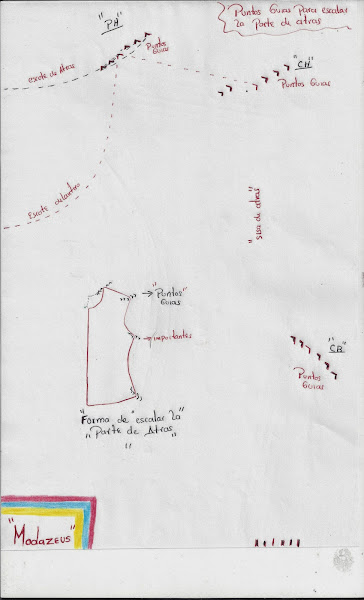 Puntos Guias para escalar
la parte de atras
"PA"
Puntos
Guias
escote de Atras
"CH"
Puntos Guias
Escote delantero
"sisa de atras"
"Puntos"
Guias
importantes
"CB"
Puntos
Guias
"Forma de escalar la
"Parte de Atras"
"Modazeus"